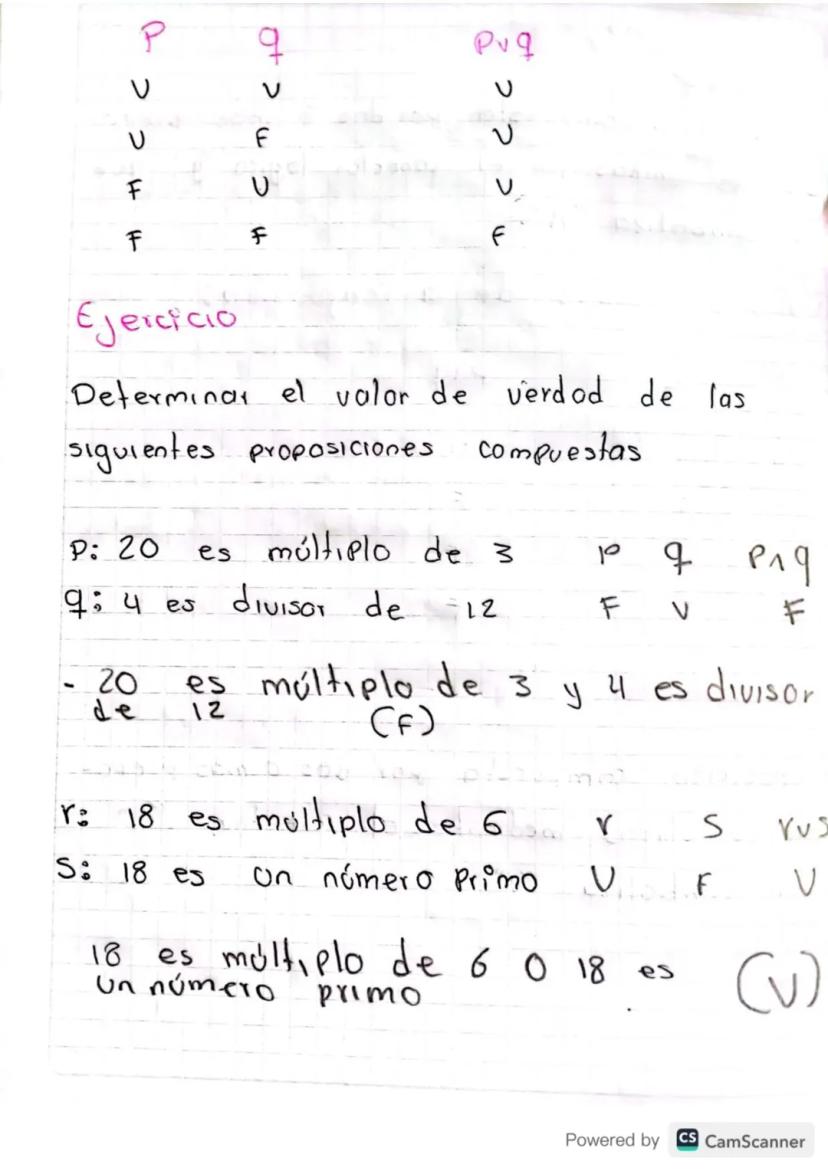 p q p∨q
V V V
V F V
F V V
F F F
Ejercicio
Determinar el valor de verdad de las
siguientes proposiciones compuestas
p: 20 es múltiplo de 3 p q p∧q
q: 4 es divisor de 12 F V F
- 20 es múltiplo de 3 y 4 es divisor
de 12 (F)
r: 18 es múltiplo de 6 r s r∨s
s: 18 es un número primo V F V
18 es múltiplo de 6 o 18 es (V)
un número primo
Powered by CS CamScanner